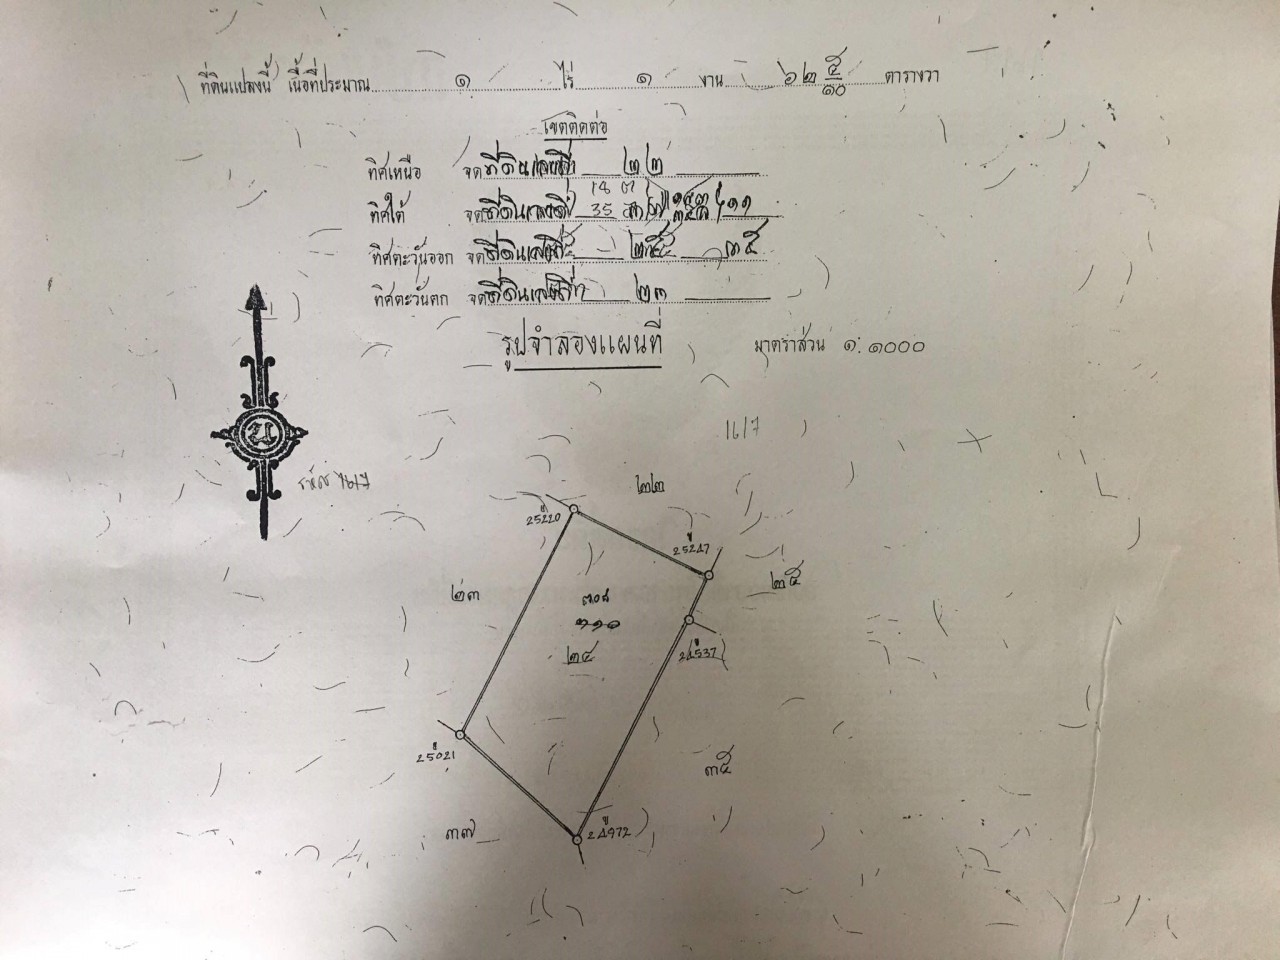 ที่ดินแปลงนี้ เนื้อที่ประมาณ ๑ ไร่ ๑ งาน ๖๒ ๕/๑๐ ตารางวา
เขตติดต่อ
ทิศเหนือ จดที่ดินเลขที่ ๒๒
ทิศใต้ จดที่ดินเลขที่
ทิศตะวันออก จดที่ดินเลขที่ ๒๕ ๓๕
ทิศตะวันตก จดที่ดินเลขที่ ๒๓
รูปจำลองแผนที่ มาตราส่วน ๑:๑๐๐๐
๒๒
25220
25247
๒๕
๒๓
๒๔
24537
25021
๓๕
๓๗
24972